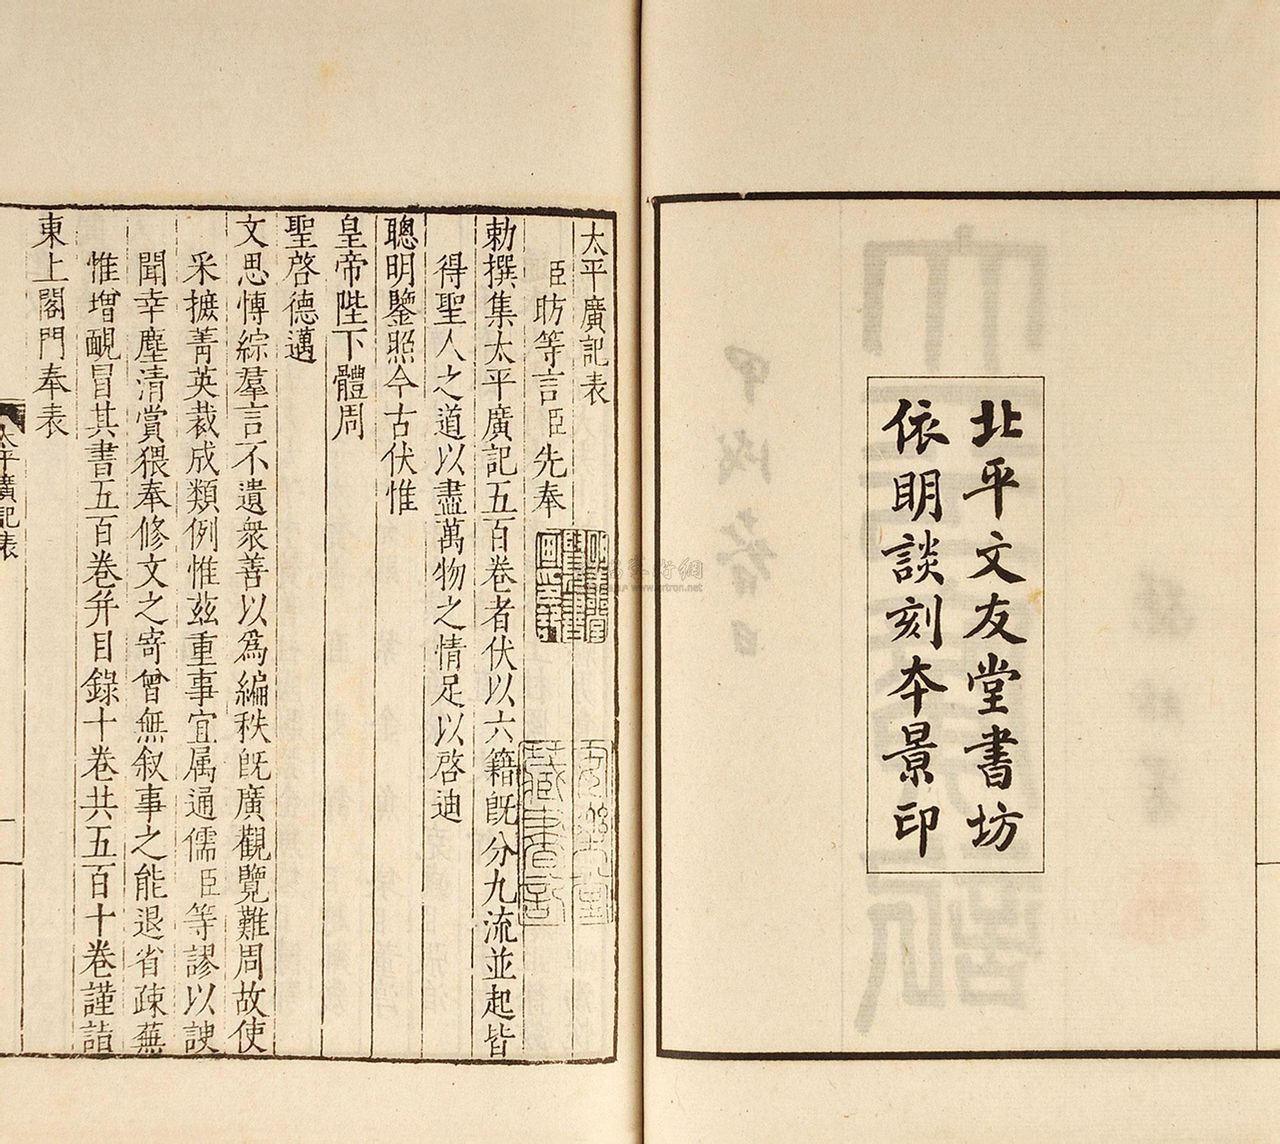 北平文友堂書坊
依明談刻本景印
太平廣記表
臣昉等言臣先奉
勑撰集太平廣記五百卷者伏以六籍旣分九流並起皆
得聖人之道以盡萬物之情足以啓迪
聰明鑒照今古伏惟
皇帝陛下體周
聖啓德邁
文思博綜羣言不遺衆善以爲編秩旣廣觀覽難周故使
采摭菁英裁成類例惟茲重事宜属通儒臣等謬以諛
聞幸塵清賞猥奉修文之寄曾無叙事之能退省疎蕪
惟增靦冒其書五百卷并目錄十卷共五百十卷謹詣
東上閣門奉表
太平廣記表